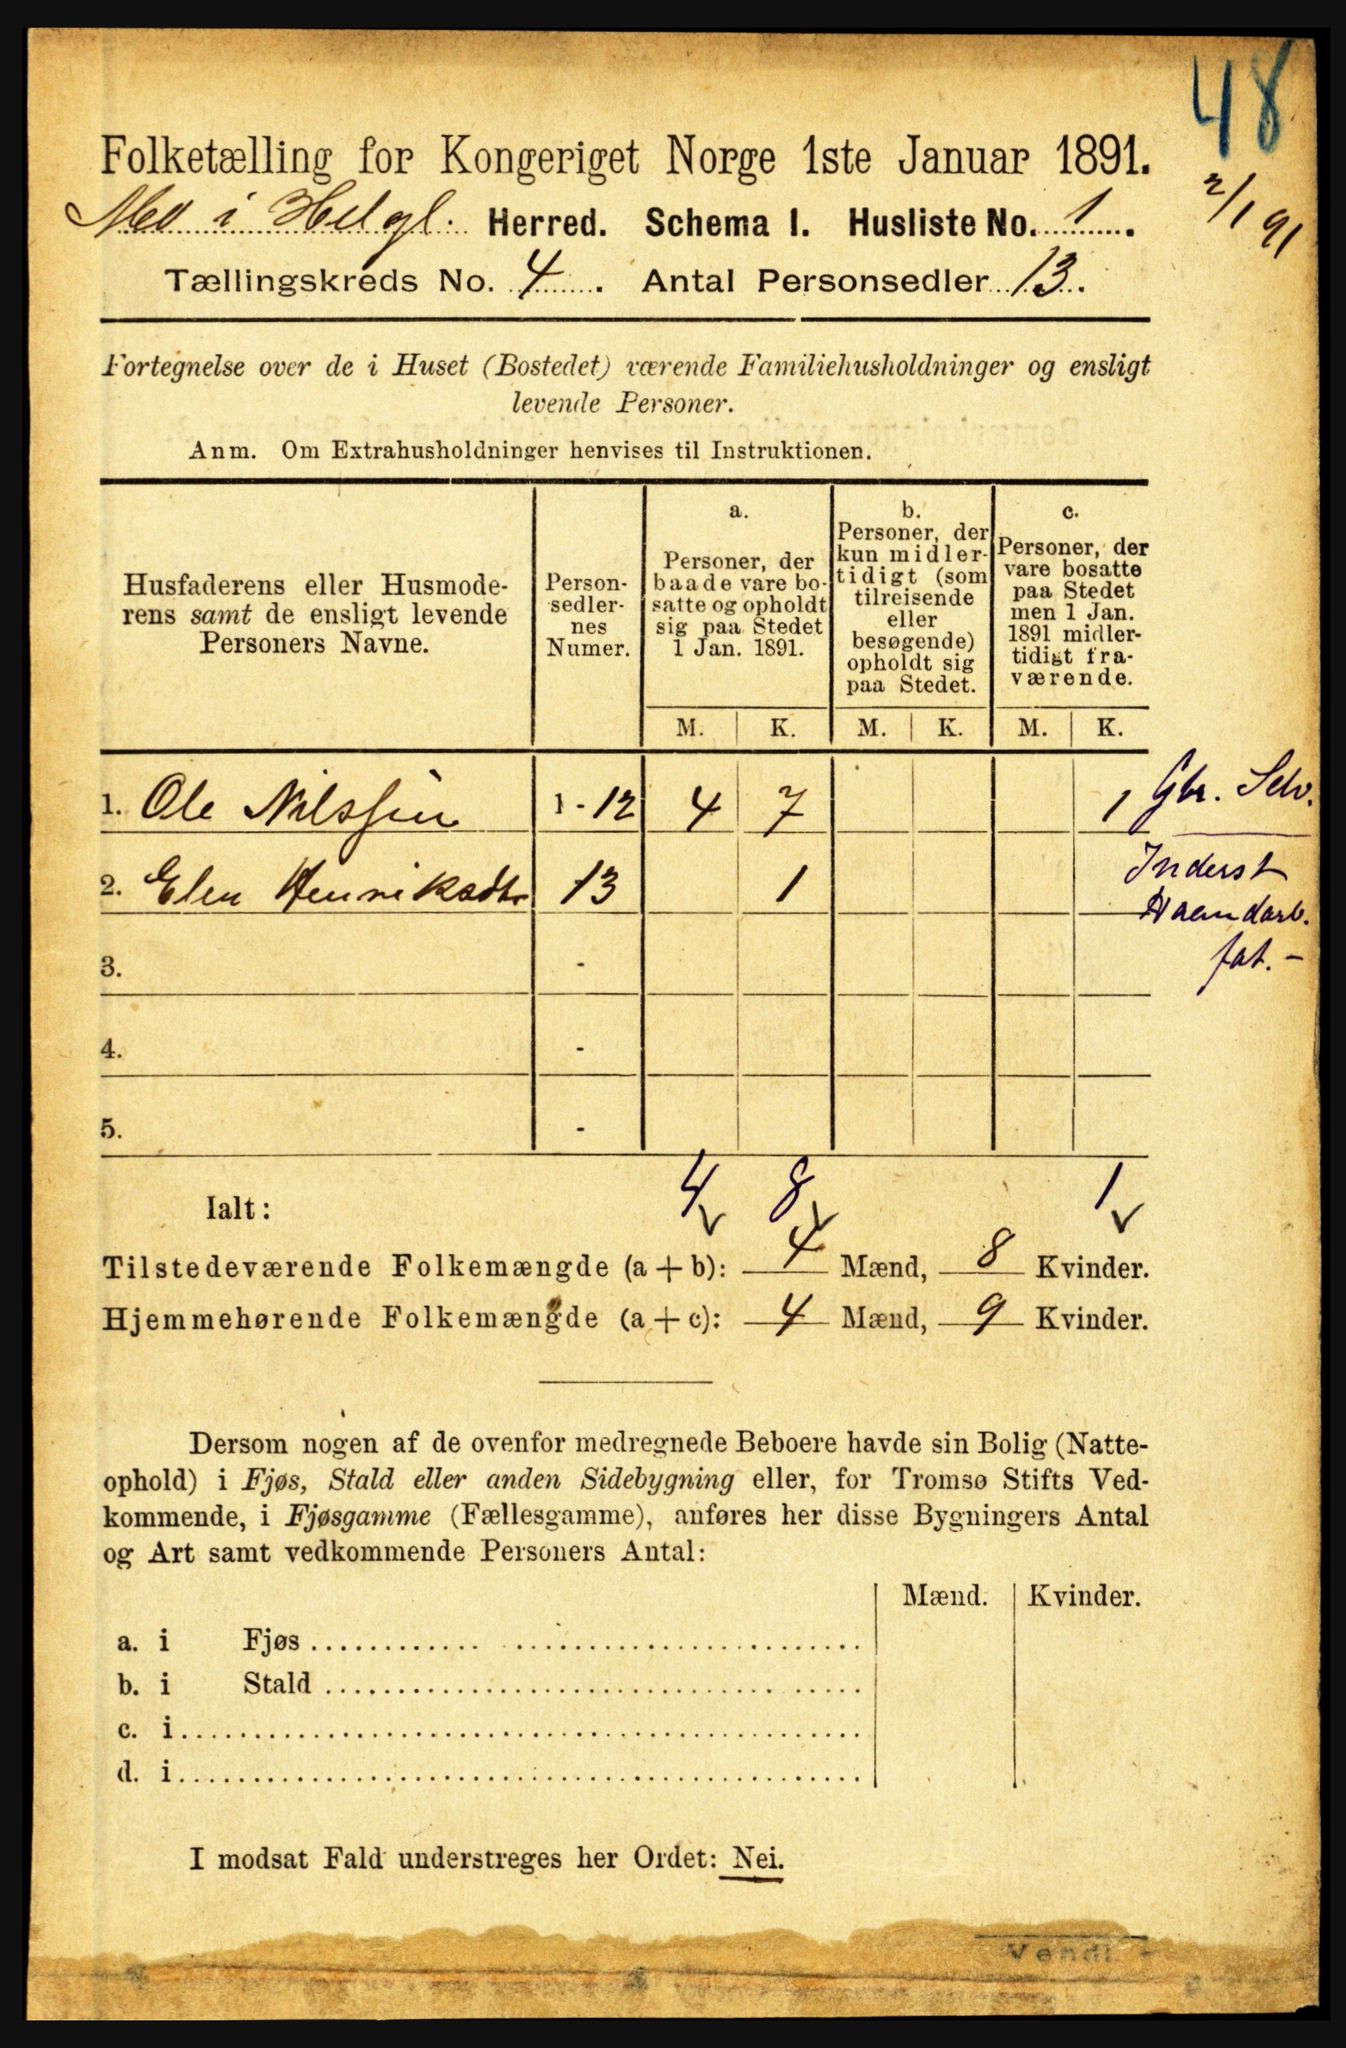 48
Folketælling for Kongeriget Norge 1ste Januar 1891.
2/1 91
Mo i Helgl. Herred. Schema I. Husliste No. 1.
Tællingskreds No. 4. Antal Personsedler 13.
Fortegnelse over de i Huset (Bostedet) værende Familiehusholdninger og ensligt
levende Personer.
Anm. Om Extrahusholdninger henvises til Instruktionen.
Husfaderens eller Husmode-
rens samt de ensligt levende
Personers Navne.
Person-
sedler-
nes
Numer.
a.
Personer, der
baade vare bo-
satte og opholdt
sig paa Stedet
1 Jan. 1891.
b.
Personer, der
kun midler-
tidigt (som
tilreisende
eller
besøgende)
opholdt sig
paa Stedet.
c.
Personer, der
vare bosatte
paa Stedet
men 1 Jan.
1891 midler-
tidigt fra-
værende.
M. K. M. K. M. K.
1. Ole Nilssen 1 - 12 4 7 1 Gbr. Selv.
2. Elen Henriksdtr 13 1 Inderst
Haandarb.
fat. -
3. -
4. -
5. -
Ialt: 4 8 1
Tilstedeværende Folkemængde (a + b): 4 Mænd, 8 Kvinder.
Hjemmehørende Folkemængde (a + c): 4 Mænd, 9 Kvinder.
Dersom nogen af de ovenfor medregnede Beboere havde sin Bolig (Natte-
ophold) i Fjøs, Stald eller anden Sidebygning eller, for Tromsø Stifts Ved-
kommende, i Fjøsgamme (Fællesgamme), anføres her disse Bygningers Antal
og Art samt vedkommende Personers Antal:
Mænd. Kvinder.
a. i Fjøs
b. i Stald
c. i
d. i
I modsat Fald understreges her Ordet: Nei.
Vend!